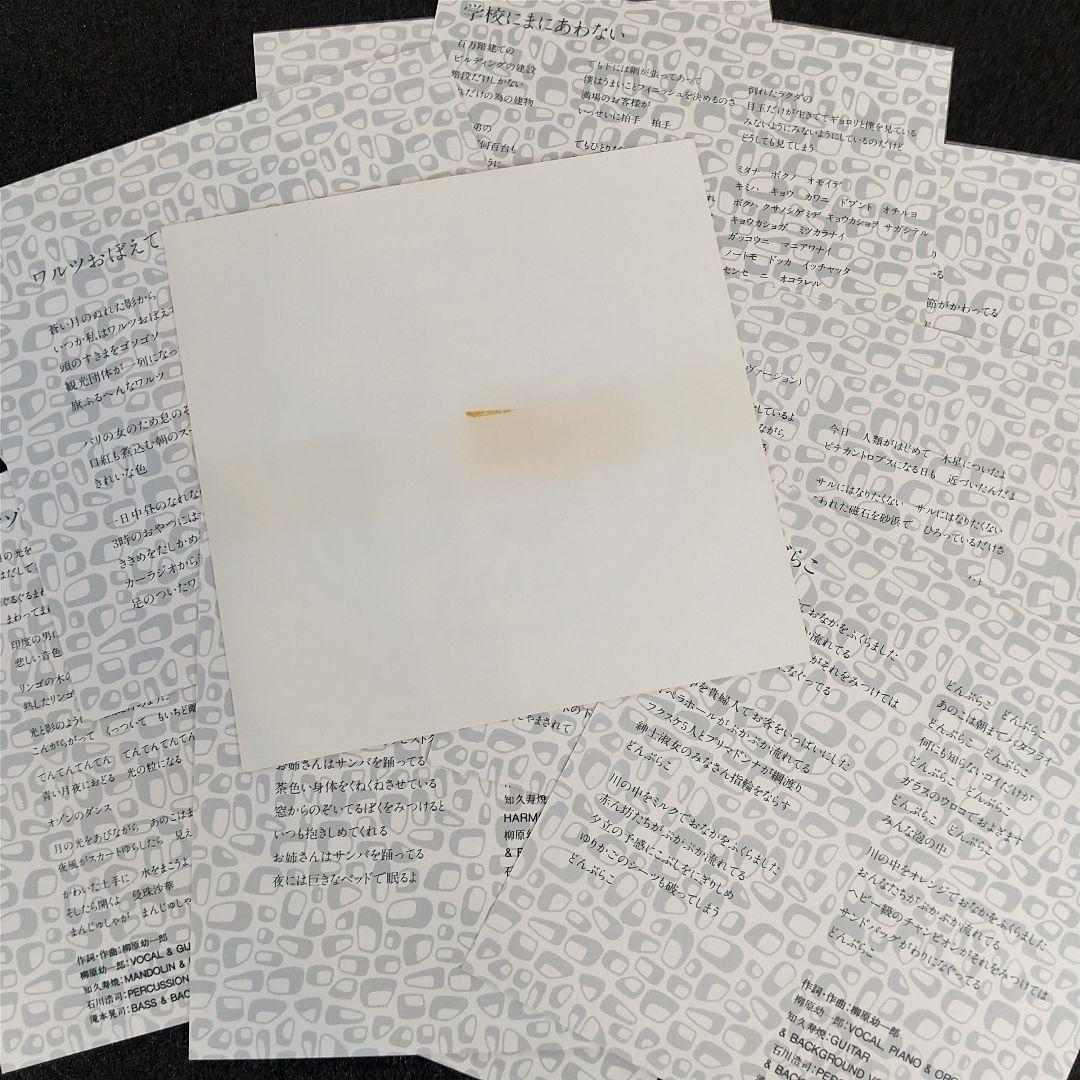 学校にまにあわない
百万階建ての
ビルディングの建設
階段だけしかない
だけの為の建物
弟の
何百台も
うに
でも下には網が張ってあって
僕はうまいことフィニッシュを決めるのさ
満場のお客様が
いっせいに拍手 拍手
倒れたラクダの
目玉だけが生きててギョロリと僕を見ている
みないようにみないようにしているのだけど
どうしても見てしまう
ミタナ ボクノ オモイデ
キミハ キョウ カワニ ドブント オチルヨ
ボクハ クサノシゲミデ キョウカショヲ サガシテル
キョウカショガ ミツカラナイ
ガッコウニ マニアワナイ
ノートモ ドッカ イッチャッタ
センセーニ オコラレル
節がかわってる
ワルツおぼえて
蒼い月のぬれた影から
いつか私はワルツおぼえて
頭のすきまをゴソゴソ
観光団体が一列になっ
旗ふるへんなワルツ
パリの女のため息のそ
口紅も煮込む朝のスー
きれいな色
一日中昼のなれな
3時のおやつには
ききめをたしかめ
カーラジオから
足のついたワ
ヴァージョン)
しているよ
ながら
今日 人類がはじめて 木星についたよ
ピテカントロプスになる日も 近づいたんだよ
サルにはなりたくない サルにはなりたくない
われた磁石を砂浜で ひろっているだけさ
月の光を
はだしで
ぐるぐるまわ
まわってま
印度の男
悲しい音色
リンゴの木の
熟したリンゴ
光と影のよう
こんがらがって くっついて もいちど
てんてんてんてん てんてんてん
青い月夜におどる 光の粒になる
オゾンのダンス
月の光をあびながら あのこはま
夜風がスカートゆらしたら 見え
かわいた土手に 水をまこうよ
そしたら開くよ 曼珠沙華
まんじゅしゃが まんじゅしゃ
作詞・作曲:柳原幼一郎
柳原幼一郎:VOCAL & GU
知久寿焼:MANDOLIN &
石川浩司:PERCUSSION
滝本晃司:BASS & BAC
お姉さんはサンバを踊ってる
茶色い身体をくねくねさせている
窓からのぞいてるぼくをみつけると
いつも抱きしめてくれる
お姉さんはサンバを踊ってる
夜には巨きなベッドで眠るよ
やまされて
知久寿焼
HARM
柳原幼
& F
らこ
でおなかをふくらました
流れてる
がそれをみつけては
なぐってる
を貴婦人でお客をいっぱいにした
ペラホールがぷかぷか流れてる
フクスケ5人とプリマドンナが綱渡り
紳士淑女のみなさん指輪をならす
どんぶらこ
川の中をミルクでおなかをふくらました
赤ん坊たちがぷかぷか流れてる
夕立の予感にこぶしをにぎりしめ
ゆりかごのシーツも破ってしまう
どんぶらこ
どんぶらこ どんぶらこ
あのこは朝までバタフライ
どんぶらこ どんぶらこ
何にも知らないコイだけが
どんぶらこ どんぶらこ
ガラスのウロコでおよぎます
どんぶらこ どんぶらこ
みんな泡の中
川の中をオレンジでおなかをふくらました
おんなたちがぷかぷか流れてる
ヘビー級のチャンピオンがそれをみつけては
サンドバッグがわりになぐってる
どんぶらこ
作詞・作曲:柳原幼一郎
柳原幼一郎:VOCAL, PIANO & ORG
知久寿焼:GUITAR
& BACKGROUND VO
石川浩司:PERC
& BAC